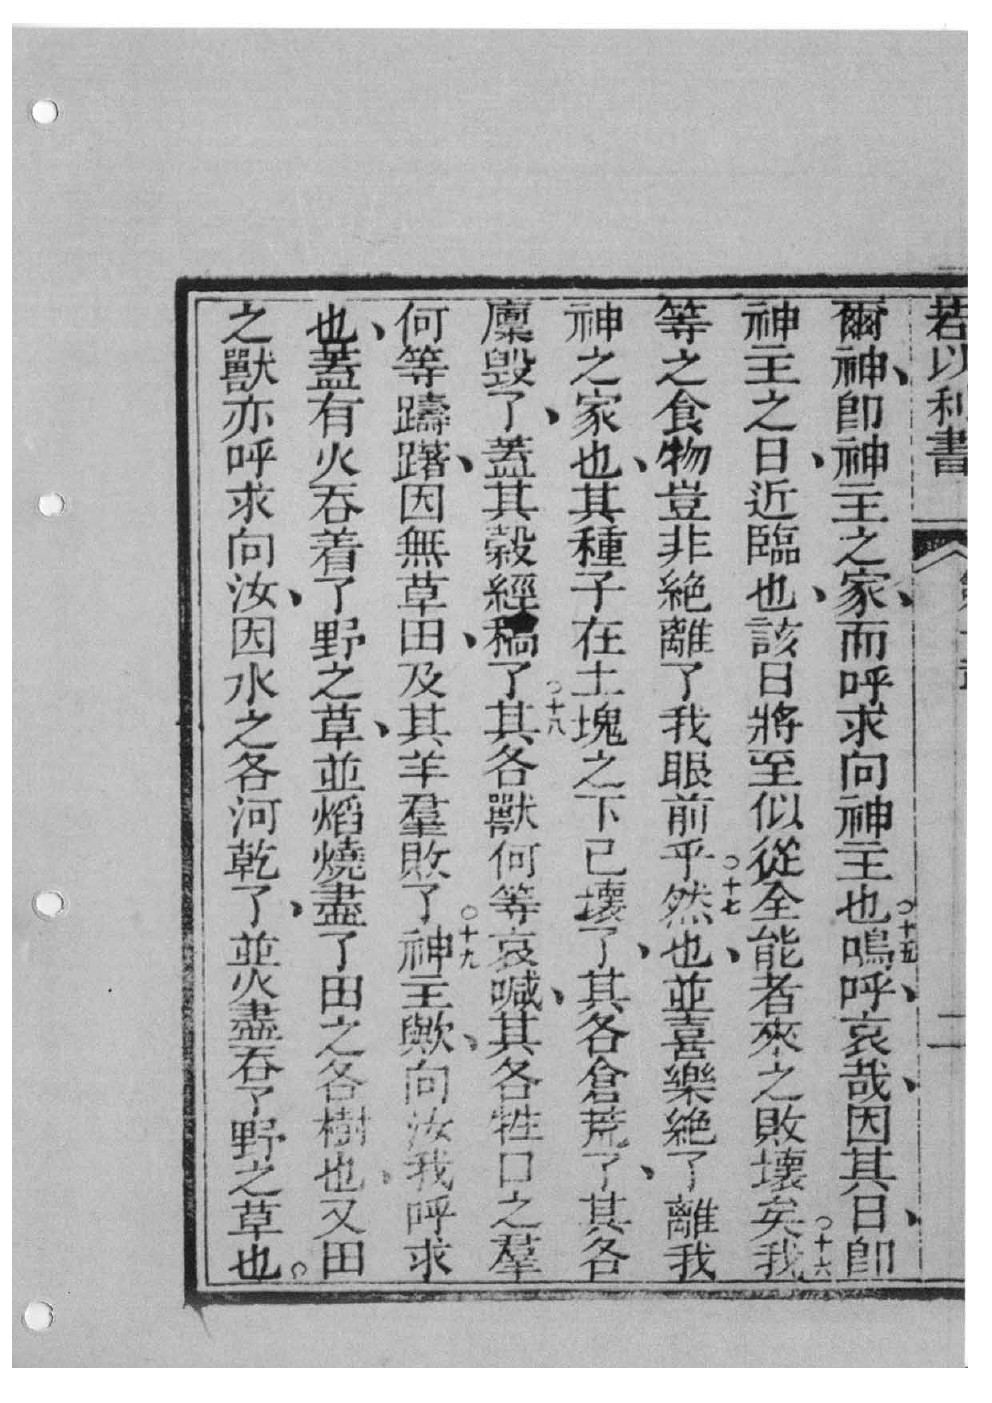 若以利書 二
爾神、卽神主之家、而呼求向神主也○十五嗚呼、哀哉、因其日、卽
神主之日、近臨也、該日將至似從全能者來之敗壞矣○十六我
等之食物豈非絶離了我眼前乎○十七然也、並喜樂絶了離我
神之家也、其種子在土塊之下已壞了、其各倉荒了、其各
廩毁了、蓋其穀經稿了○十八其各獸何等哀喊、其各牲口之羣
何等躊躇、因無草田、及其羊羣敗了○十九神主歟、向汝我呼求
也、蓋有火吞着了野之草、並熖燒盡了田之各樹也、又田
之獸亦呼求向汝、因水之各河乾了、並火盡吞了野之草也○